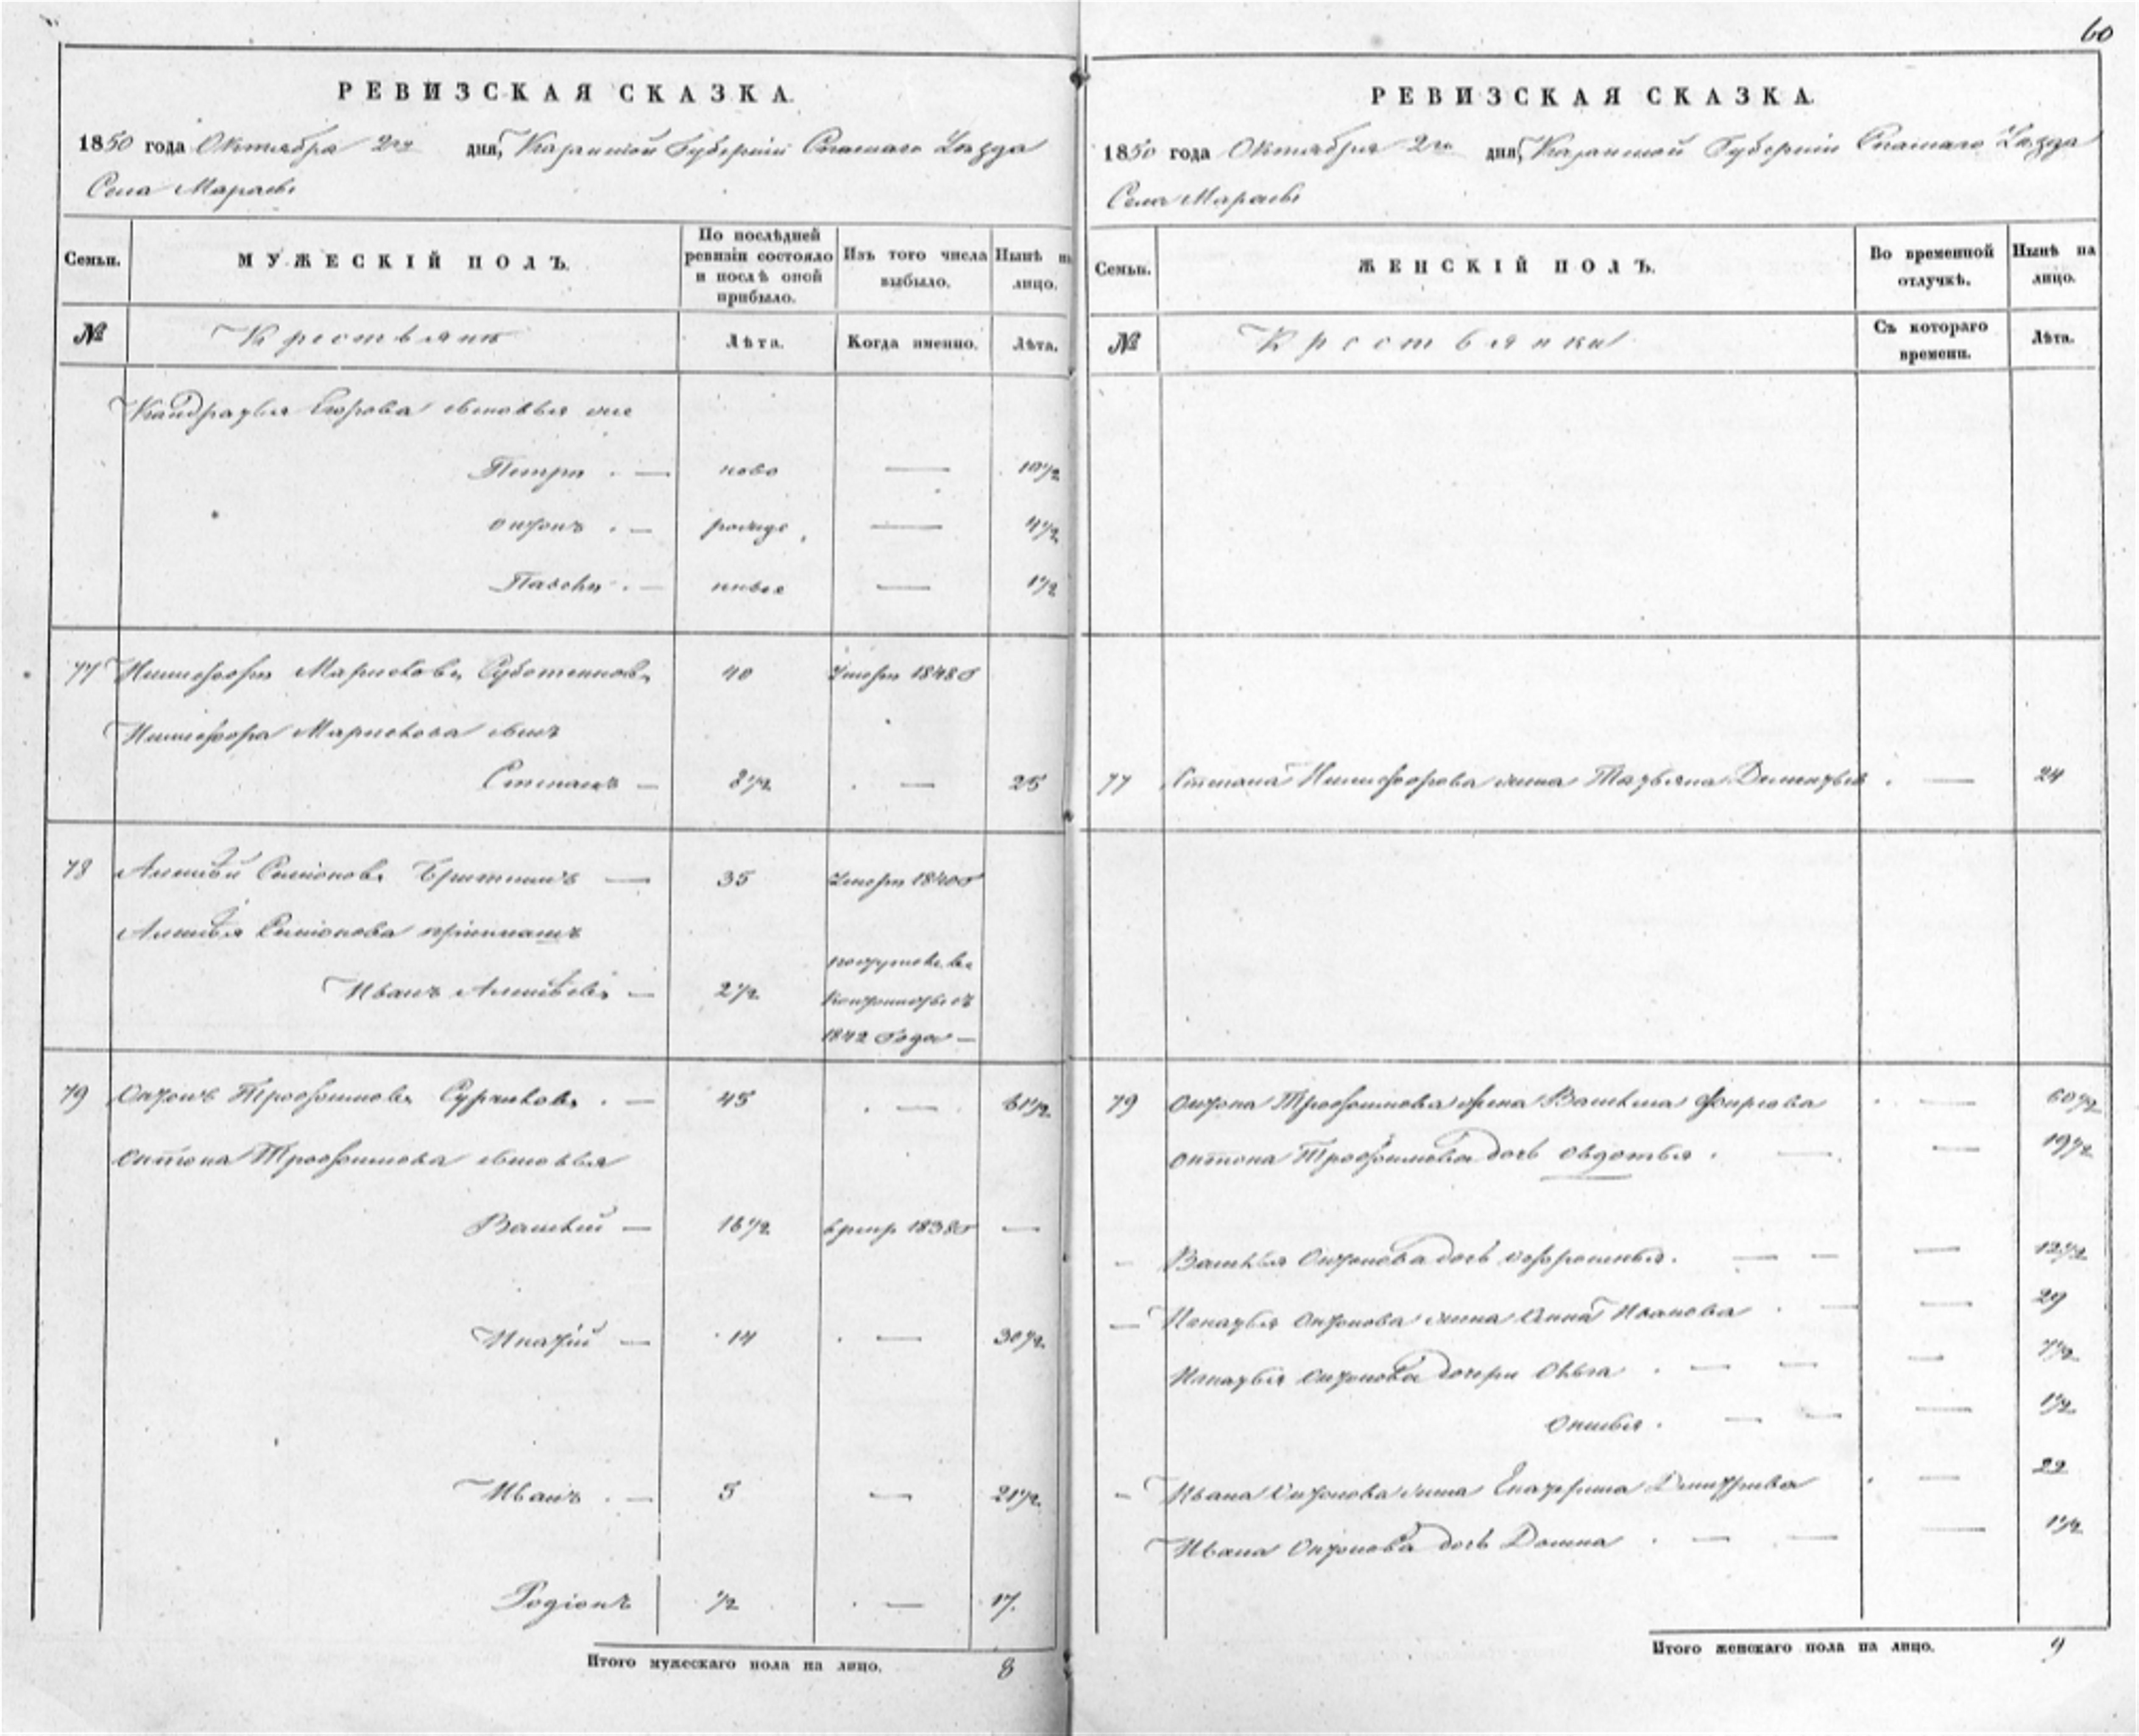 60
РЕВИЗСКАЯ СКАЗКА.
1850 года Октября 2го дня, Казанской Губерніи Спасшаго Уѣзда
Села
Семьи.
МУЖЕСКІЙ ПОЛЪ.
По послѣдней ревизіи состояло и послѣ оной прибыло.
Изъ того числа выбыло.
Нынѣ на лицо.
№
Крестьяне
Лѣта.
Когда именно.
Лѣта.
Кондратья Егорова сыновья
Петръ . — ново — 10½
Онтонъ . — рожде — 4½
Павелъ . — нные — 1½
77 Никифоръ 40 Умеръ 1848 г
Никифора сынъ
Степанъ — 8½ . — 25
78 Алексѣй Семіоновъ — 35 Умеръ 1840 г
Алексѣя Семіонова пріемышъ
Иванъ Алексѣевъ — 2½ поступилъ въ
кантонисты въ
1842 Года —
79 Онтонъ Трофимовъ Суриковъ . — 45 . — 61½
Онтона Трофимова сыновья
Василій — 16½ в рекр 1838 г —
Игнатій — 14 . — 30½
Иванъ . — 5 — 21½
Родіонъ ½ . — 17.
Итого мужескаго пола на лицо. 8
РЕВИЗСКАЯ СКАЗКА.
1850 года Октября 2го дня, Казанской Губерніи Спасшаго Уѣзда
Села
Семьи.
ЖЕНСКІЙ ПОЛЪ.
Во временной отлучкѣ.
Нынѣ на лицо.
№
Крестьянки
Съ котораго времени.
Лѣта.
77 Степана Никифорова жена Татьяна Дементьева . — 24
79 Онтона Трофимова жена Василиса . — 60½
Онтона Трофимова дочь Овдотья . — — 19½
— Василья Онтонова дочь . — — — 12½
— Игнатья Онтонова жена Анна Иванова . — — 29
Игнатья Онтонова дочери Ольга . — — — 7½
Онисья . — — — 1½
— Ивана Онтонова жена Екатерина Дмитріева . — 22
Ивана Онтонова дочь Домна . — — — 1½
Итого женскаго пола на лицо. 9